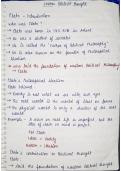 Western Political thought
Plato - Introduction
Who was Plato?
→ Plato was born in 428 B.C in Athens
→ He was a student of Socrates
→ He is called the "Father of Political Philosophy"
→ He laid the foundation of western Political Philosophy
Plato
Plato's Philosophical Idealism
Plato believed
→ Reality is not what we see with our eyes
→ The real world is the world of Ideas or forms
→ The physical world is only a shadow of the real world
Example - A chair in real life is imperfect but the idea of chair in mind is perfect.
For Plato
Ideas = Reality
Matter = Shadow
Plato's contribution to Political thought
Plato
→ laid the foundation of western Political thought